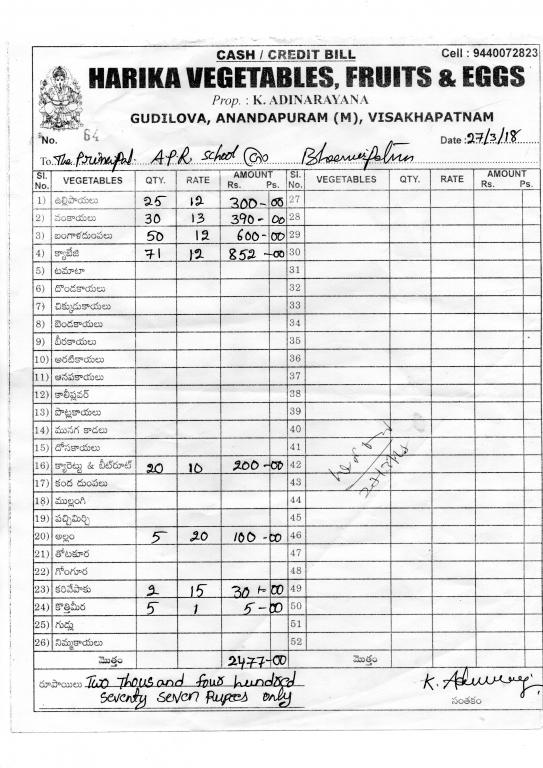 CASH / CREDIT BILL Cell : 9440072823
HARIKA VEGETABLES, FRUITS & EGGS
Prop. : K. ADINARAYANA
GUDILOVA, ANANDAPURAM (M), VISAKHAPATNAM
No. 64 Date : 27/3/18
To. The Principal. A.P.R School
Sl. No. VEGETABLES QTY. RATE AMOUNT Rs. Ps. Sl. No. VEGETABLES QTY. RATE AMOUNT Rs. Ps.
1) ఉల్లిపాయలు 25 12 300-00 27
2) వంకాయలు 30 13 390-00 28
3) బంగాళదుంపలు 50 12 600-00 29
4) క్యాబేజి 71 12 852-00 30
5) టమాటా 31
6) దొండకాయలు 32
7) చిక్కుడుకాయలు 33
8) బెండకాయలు 34
9) బీరకాయలు 35
10) అరటికాయలు 36
11) ఆనపకాయలు 37
12) కాలీఫ్లవర్ 38
13) పొట్లకాయలు 39
14) మునగ కాడలు 40
15) దోసకాయలు 41
16) క్యారెట్టు & బీట్‌రూట్ 20 10 200-00 42
17) కంద దుంపలు 43
18) ముల్లంగి 44
19) పచ్చిమిర్చి 45
20) అల్లం 5 20 100-00 46
21) తోటకూర 47
22) గోంగూర 48
23) కరివేపాకు 2 15 30-00 49
24) కొత్తిమీర 5 1 5-00 50
25) గుడ్లు 51
26) నిమ్మకాయలు 52
మొత్తం 2477-00 మొత్తం
రూపాయిలు Two Thousand four hundred
seventy seven Rupees only
సంతకం